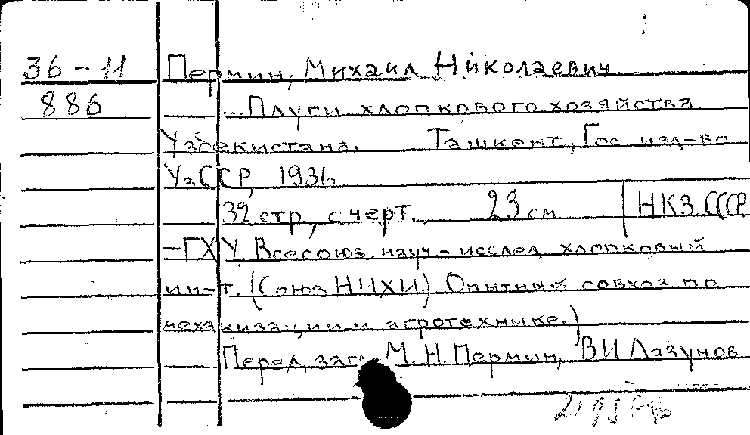 36-11 Пермин, Михаил Николаевич
886 Плуги хлопкового хозяйства
Узбекистана. Ташкент, Гос. изд-во
УзССР, 1936.
32 стр., с черт. 23 см. [НКЗ СССР
-ГХУ Всесоюз. науч-исслед. хлопковый
ин-т. (Союз НИХИ) Опытный совхоз по
механизации и агротехнике.)
Перед загл. М. Н. Пермин, В И Лазунов